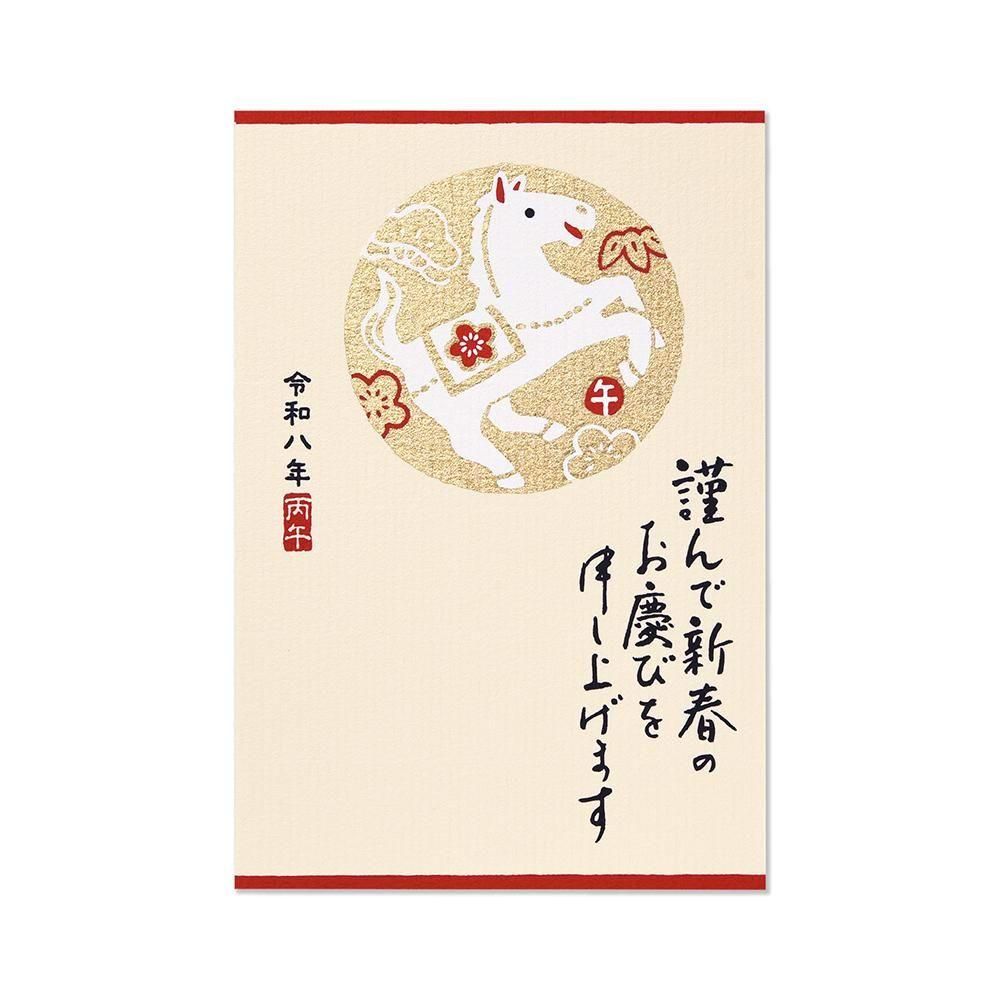 謹んで新春の
お慶びを
申し上げます
午
令和八年
丙午